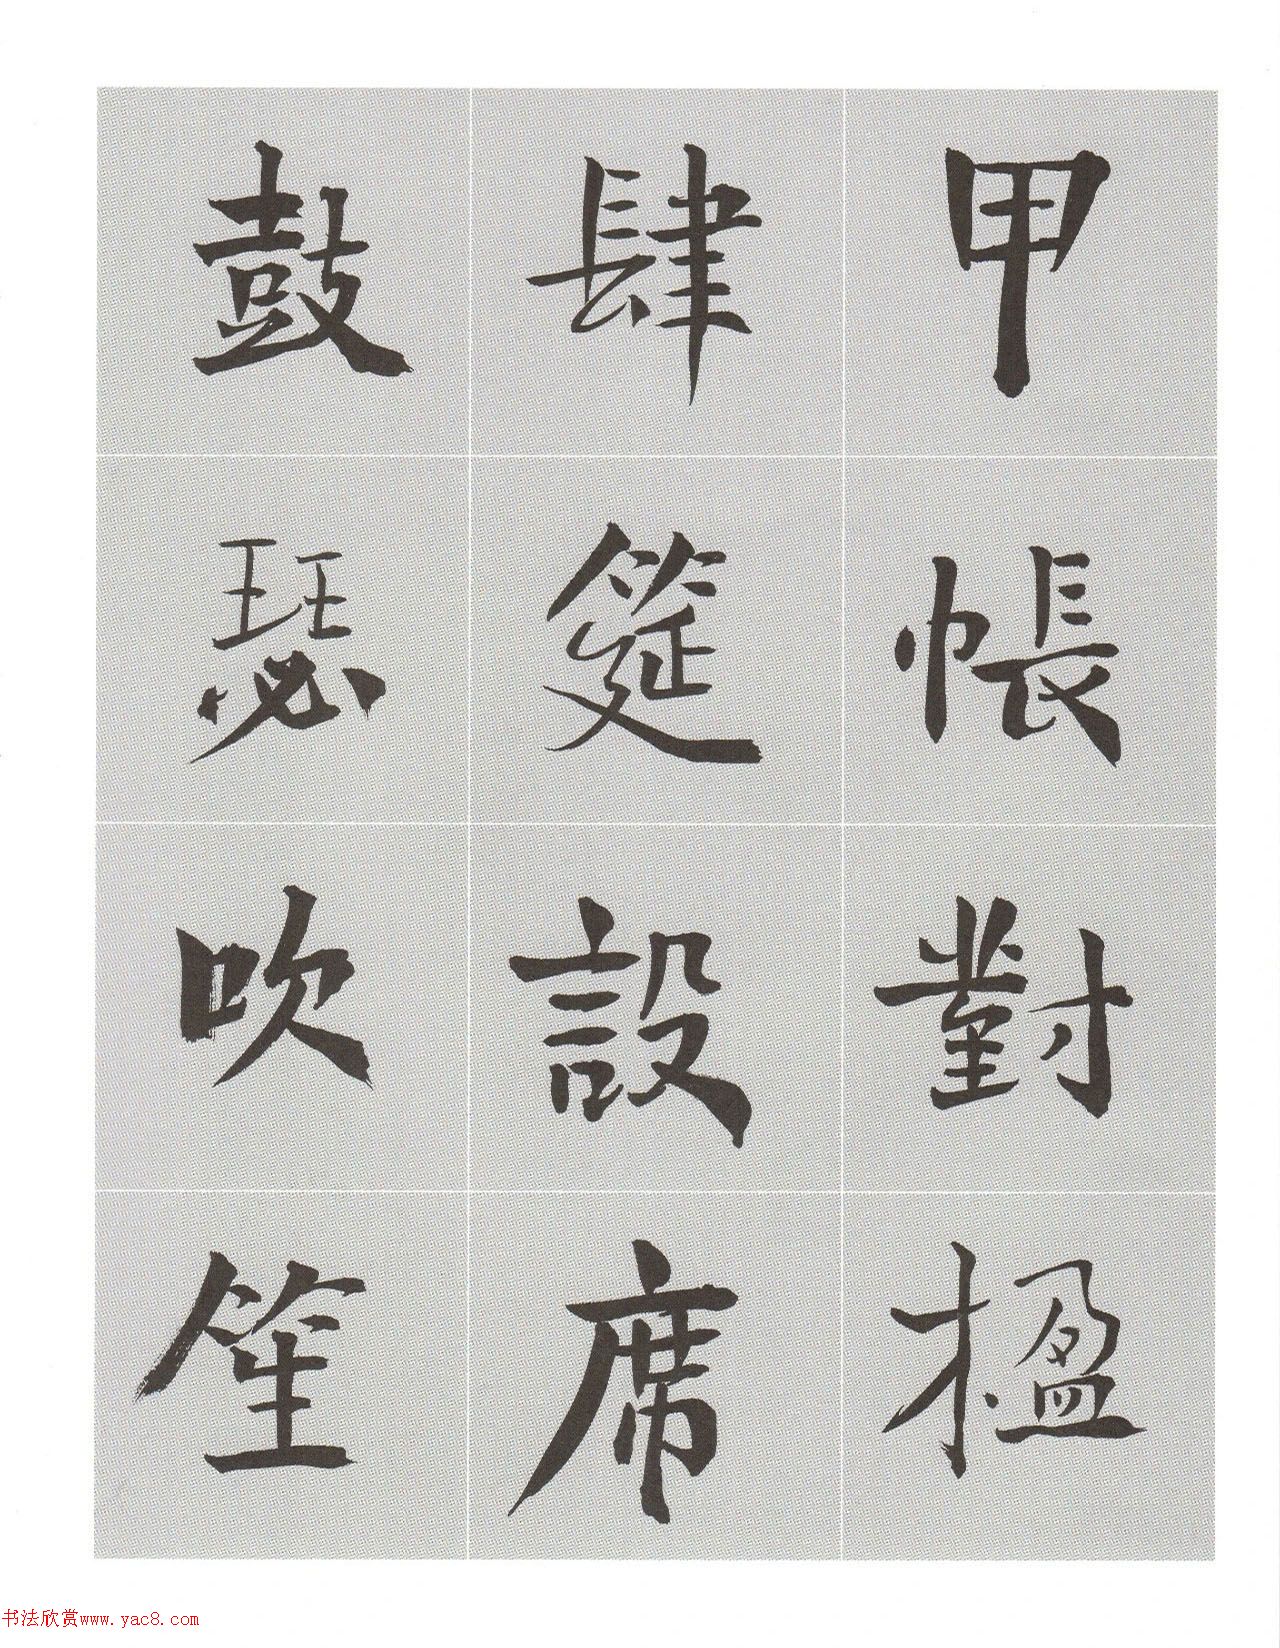 甲帳對楹
肆筵設席
鼓瑟吹笙
书法欣赏www.yac8.com